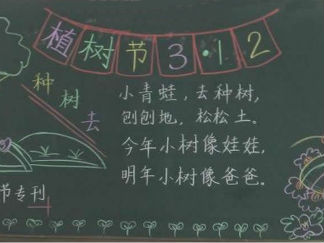 植树节3·12
种树去
小青蛙，去种树，
刨刨地，松松土。
今年小树像娃娃，
明年小树像爸爸。
节专刊